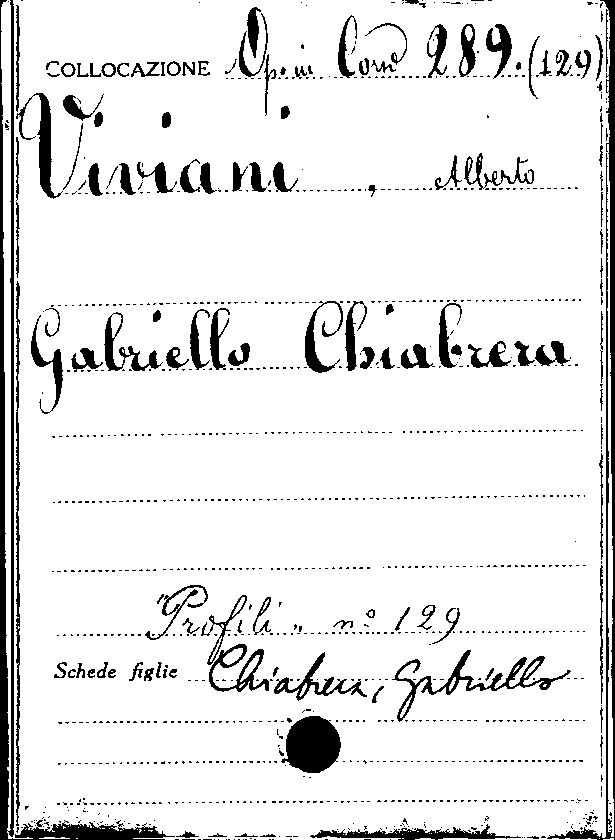 COLLOCAZIONE 289. (129)
Viviani, Alberto
Gabriello Chiabrera
"Profili" nº 129
Schede figlie Chiabrera, Gabriello